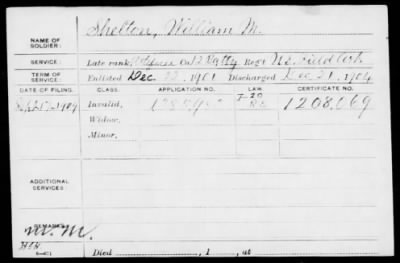 NAME OF SOLDIER: Shelton, William M.
SERVICE: Late rank, Co. 12 Batty, Reg't U.S. Field Arty
TERM OF SERVICE: Enlisted Dec. 22, 1901 Discharged Dec 21, 1904
DATE OF FILING. CLASS. APPLICATION NO. LAW. CERTIFICATE NO.
1909 Invalid, 1208,069
Widow,
Minor,
ADDITIONAL SERVICES:
REMARKS:
M. M.
Died , 1 , at